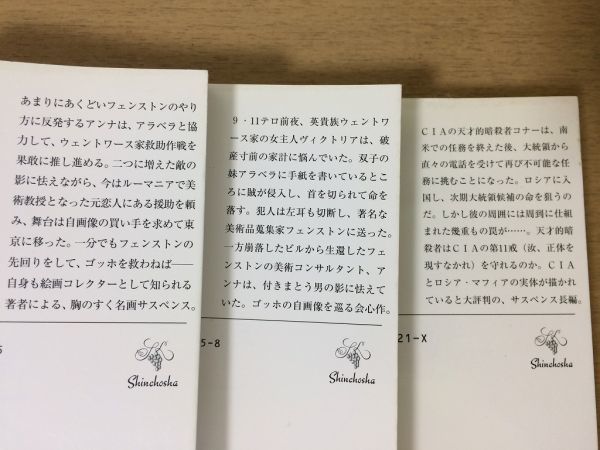 あまりにあくどいフェンストンのやり
方に反発するアンナは、アラベラと協
力して、ウェントワース家救助作戦を
果敢に推し進める。二つに増えた敵の
影に怯えながら、今はルーマニアで美
術教授となった元恋人にある援助を頼
み、舞台は自画像の買い手を求めて東
京に移った。一分でもフェンストンの
先回りをして、ゴッホを救わねば――
自身も絵画コレクターとして知られる
著者による、胸のすく名画サスペンス。
5
Shinchosha
9・11テロ前夜、英貴族ウェントワ
ース家の女主人ヴィクトリアは、破
産寸前の家計に悩んでいた。双子の
妹アラベラに手紙を書いているとこ
ろに賊が侵入し、首を切られて命を
落す。犯人は左耳も切断し、著名な
美術品蒐集家フェンストンに送った。
一方崩落したビルから生還したフェ
ンストンの美術コンサルタント、ア
ンナは、付きまとう男の影に怯えて
いた。ゴッホの自画像を巡る会心作。
5-8
Shinchosha
CIAの天才的暗殺者コナーは、南
米での任務を終えた後、大統領から
直々の電話を受けて再び不可能な任
務に挑むことになった。ロシアに入
国し、次期大統領候補の命を狙うの
だ。しかし彼の周囲には周到に仕組
まれた幾重もの罠が……。天才的暗
殺者はCIAの第11戒（汝、正体を
現すなかれ）を守れるのか。CIA
とロシア・マフィアの実体が描かれ
ていると大評判の、サスペンス長編。
21-X
Shinchosha